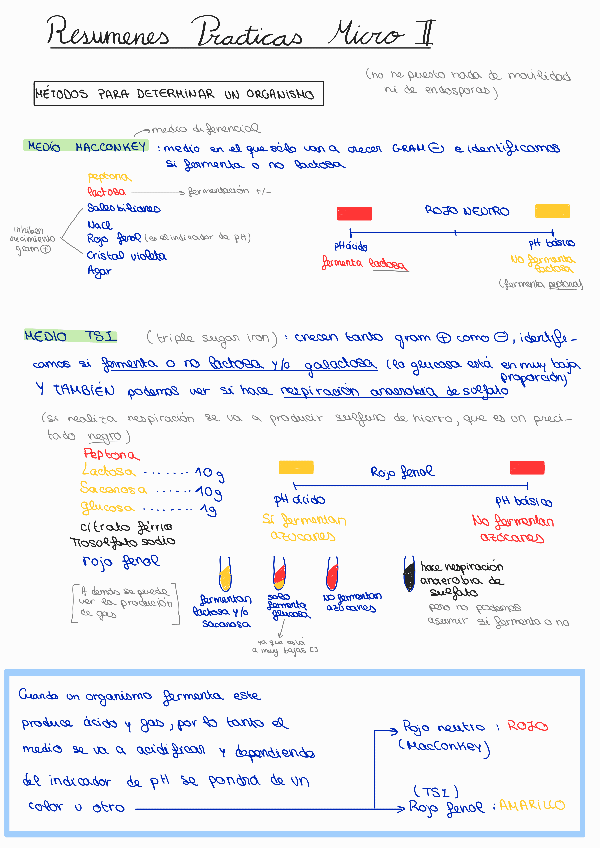 Resumenes Practicas Micro II
(no he puesto nada de movilidad
ni de endosporas)
MÉTODOS PARA DETERMINAR UN ORGANISMO
medio diferencial
MEDIO MACCONKEY : medio en el que sólo van a crecer GRAM ⊖ e identificamos
si fermenta o no lactosa
peptona
lactosa → fermentación +/-
Sales biliares
NaCl
Rojo fenol (es el indicador de pH)
Cristal violeta
Agar
inhiben
crecimiento
gram ⊕
ROJO NEUTRO
pH ácido
fermenta lactosa
pH básico
No fermenta
lactosa
(fermenta peptona)
MEDIO TSI (triple sugar iron) : crecen tanto gram ⊕ como ⊖, identifi-
camos si fermenta o no lactosa y/o galactosa (la glucosa está en muy baja
proporción)
Y TAMBIÉN podemos ver si hace respiración anaerobia de sulfato
(si realiza respiración se va a producir sulfuro de hierro, que es un preci-
tado negro)
Peptona
Lactosa ........ 10 g
Sacarosa ...... 10 g
glucosa ....... 1g
citrato férrico
Tiosulfato sodio
rojo fenol
Rojo fenol
pH ácido
Sí fermentan
azúcares
pH básico
No fermentan
azúcares
[Además se puede
ver la producción
de gas]
fermentan
lactosa y/o
sacarosa
solo
fermenta
glucosa
ya que está
a muy bajas [ ]
No fermentan
azúcares
hace respiración
anaerobia de
sulfato
pero no podemos
asumir si fermenta o no
Cuando un organismo fermenta este
produce ácido y gas, por lo tanto el
medio se va a acidificar y dependiendo
del indicador de pH se pondrá de un
color u otro
Rojo neutro : ROJO
(MacConkey)
(TSI)
Rojo fenol : AMARILLO